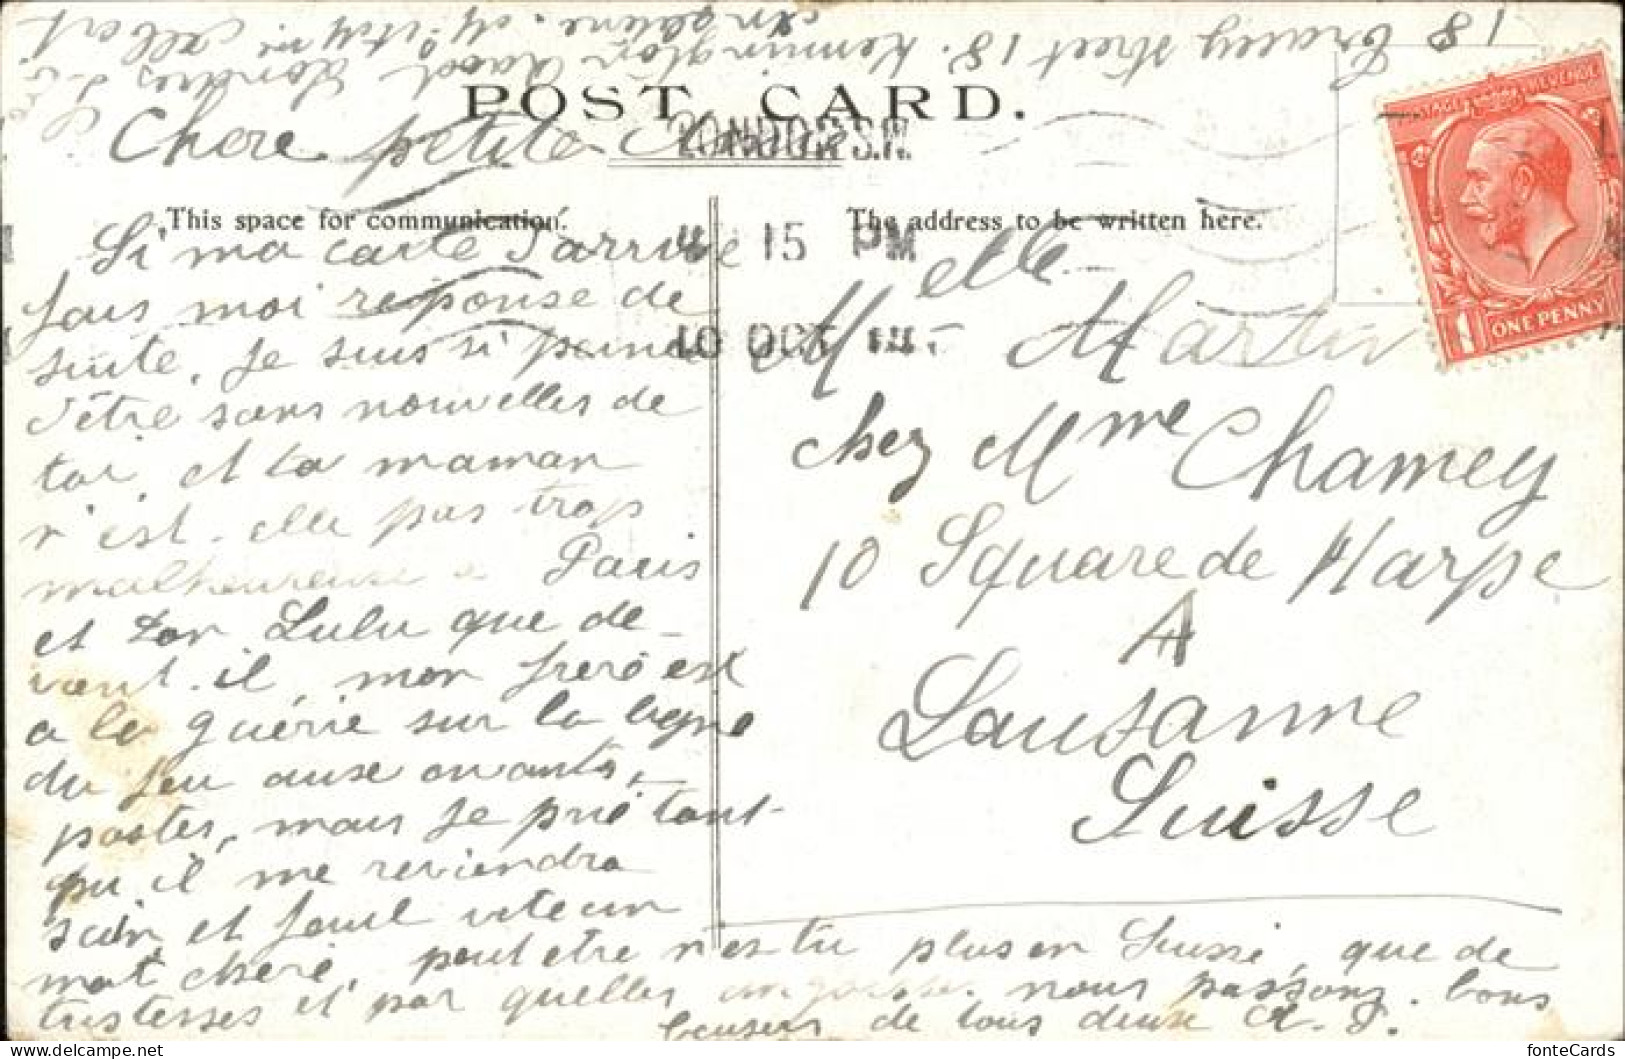 18 Tracey street 18. Kennington Road Londres
Angleterre.
POST CARD.
Chere petite
LONDON S.W.
This space for communication.
The address to be written here.
4 15 PM
10 OCT 14
ONE PENNY
Si ma carte t'arrive
fais moi reponse de
suite, je suis si peinée
d'être sans nouvelles de
toi, et ta maman
n'est-elle pas trop
malheureuse a Paris
et ton Lulu que de-
vient-il, mon frere est
a la guerre sur la ligne
du feu aux avants,
postes, mais je prie tant
qu'il me reviendra
sain et sauf vite un
mot cherie, peut etre n'es tu plus en Suisse, que de
tristesses et par quelles angoisses nous passons. bons
baisers de tous deux A. J.
Melle Martin
chez Mme Chamey
10 Square de Harpe
A
Lausanne
Suisse
fonteCards